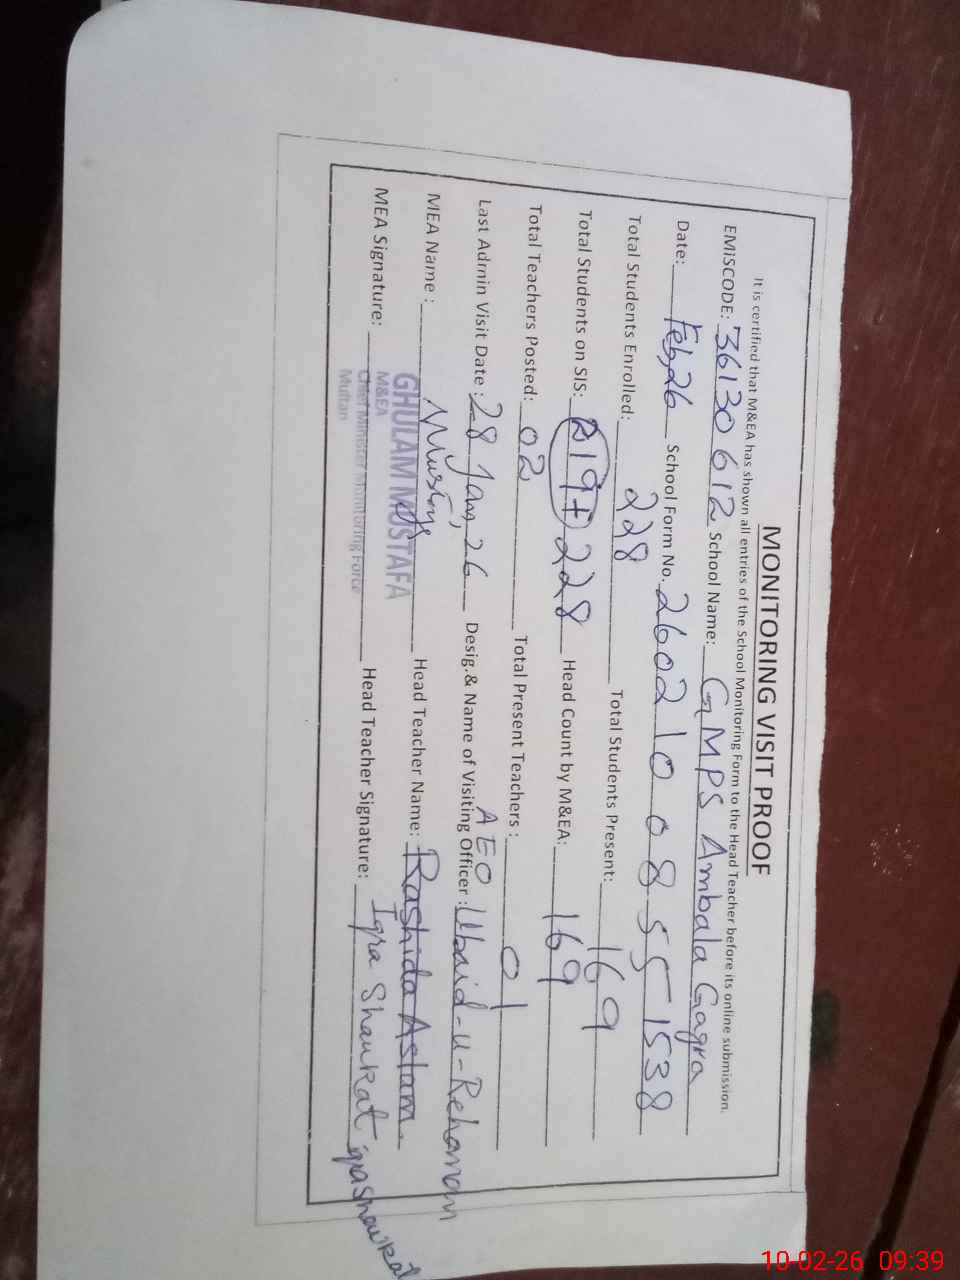 MONITORING VISIT PROOF
It is certified that M&EA has shown all entries of the School Monitoring Form to the Head Teacher before its online submission.
EMISCODE: 36130612 School Name: GMPS Ambala Gagra
Date: Feb,26 School Form No. 260210085 51538
Total Students Enrolled: 228 Total Students Present: 169
Total Students on SIS: 219+ 228 Head Count by M&EA: 169
Total Teachers Posted: 02 Total Present Teachers : 01
Last Admin Visit Date : 28 Jan, 26 Desig.& Name of Visiting Officer : AEO Ubaid-u-Rehman
MEA Name : Head Teacher Name: Rashida Aslam.
GHULAM MUSTAFA
M&EA
Chief Minister Monitoring Force
Multan
MEA Signature: Head Teacher Signature: Iqra Shaukat iqrashaukat
10-02-26 09:39